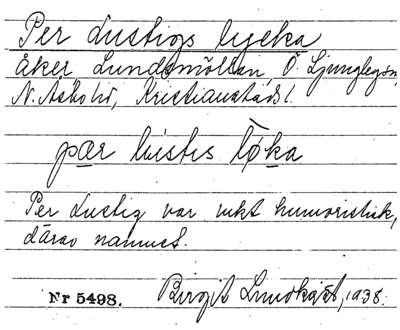 Per Lustigs lycka
åker, Lundsmöllan, Ö. Ljunglegön,
N. Åsbo hd, Kristianstads l.
pær lustis løka
Per Lustig var rikt humoristisk,
därav namnet.
Nr 5498. Birgit Lundkvist, 1938.